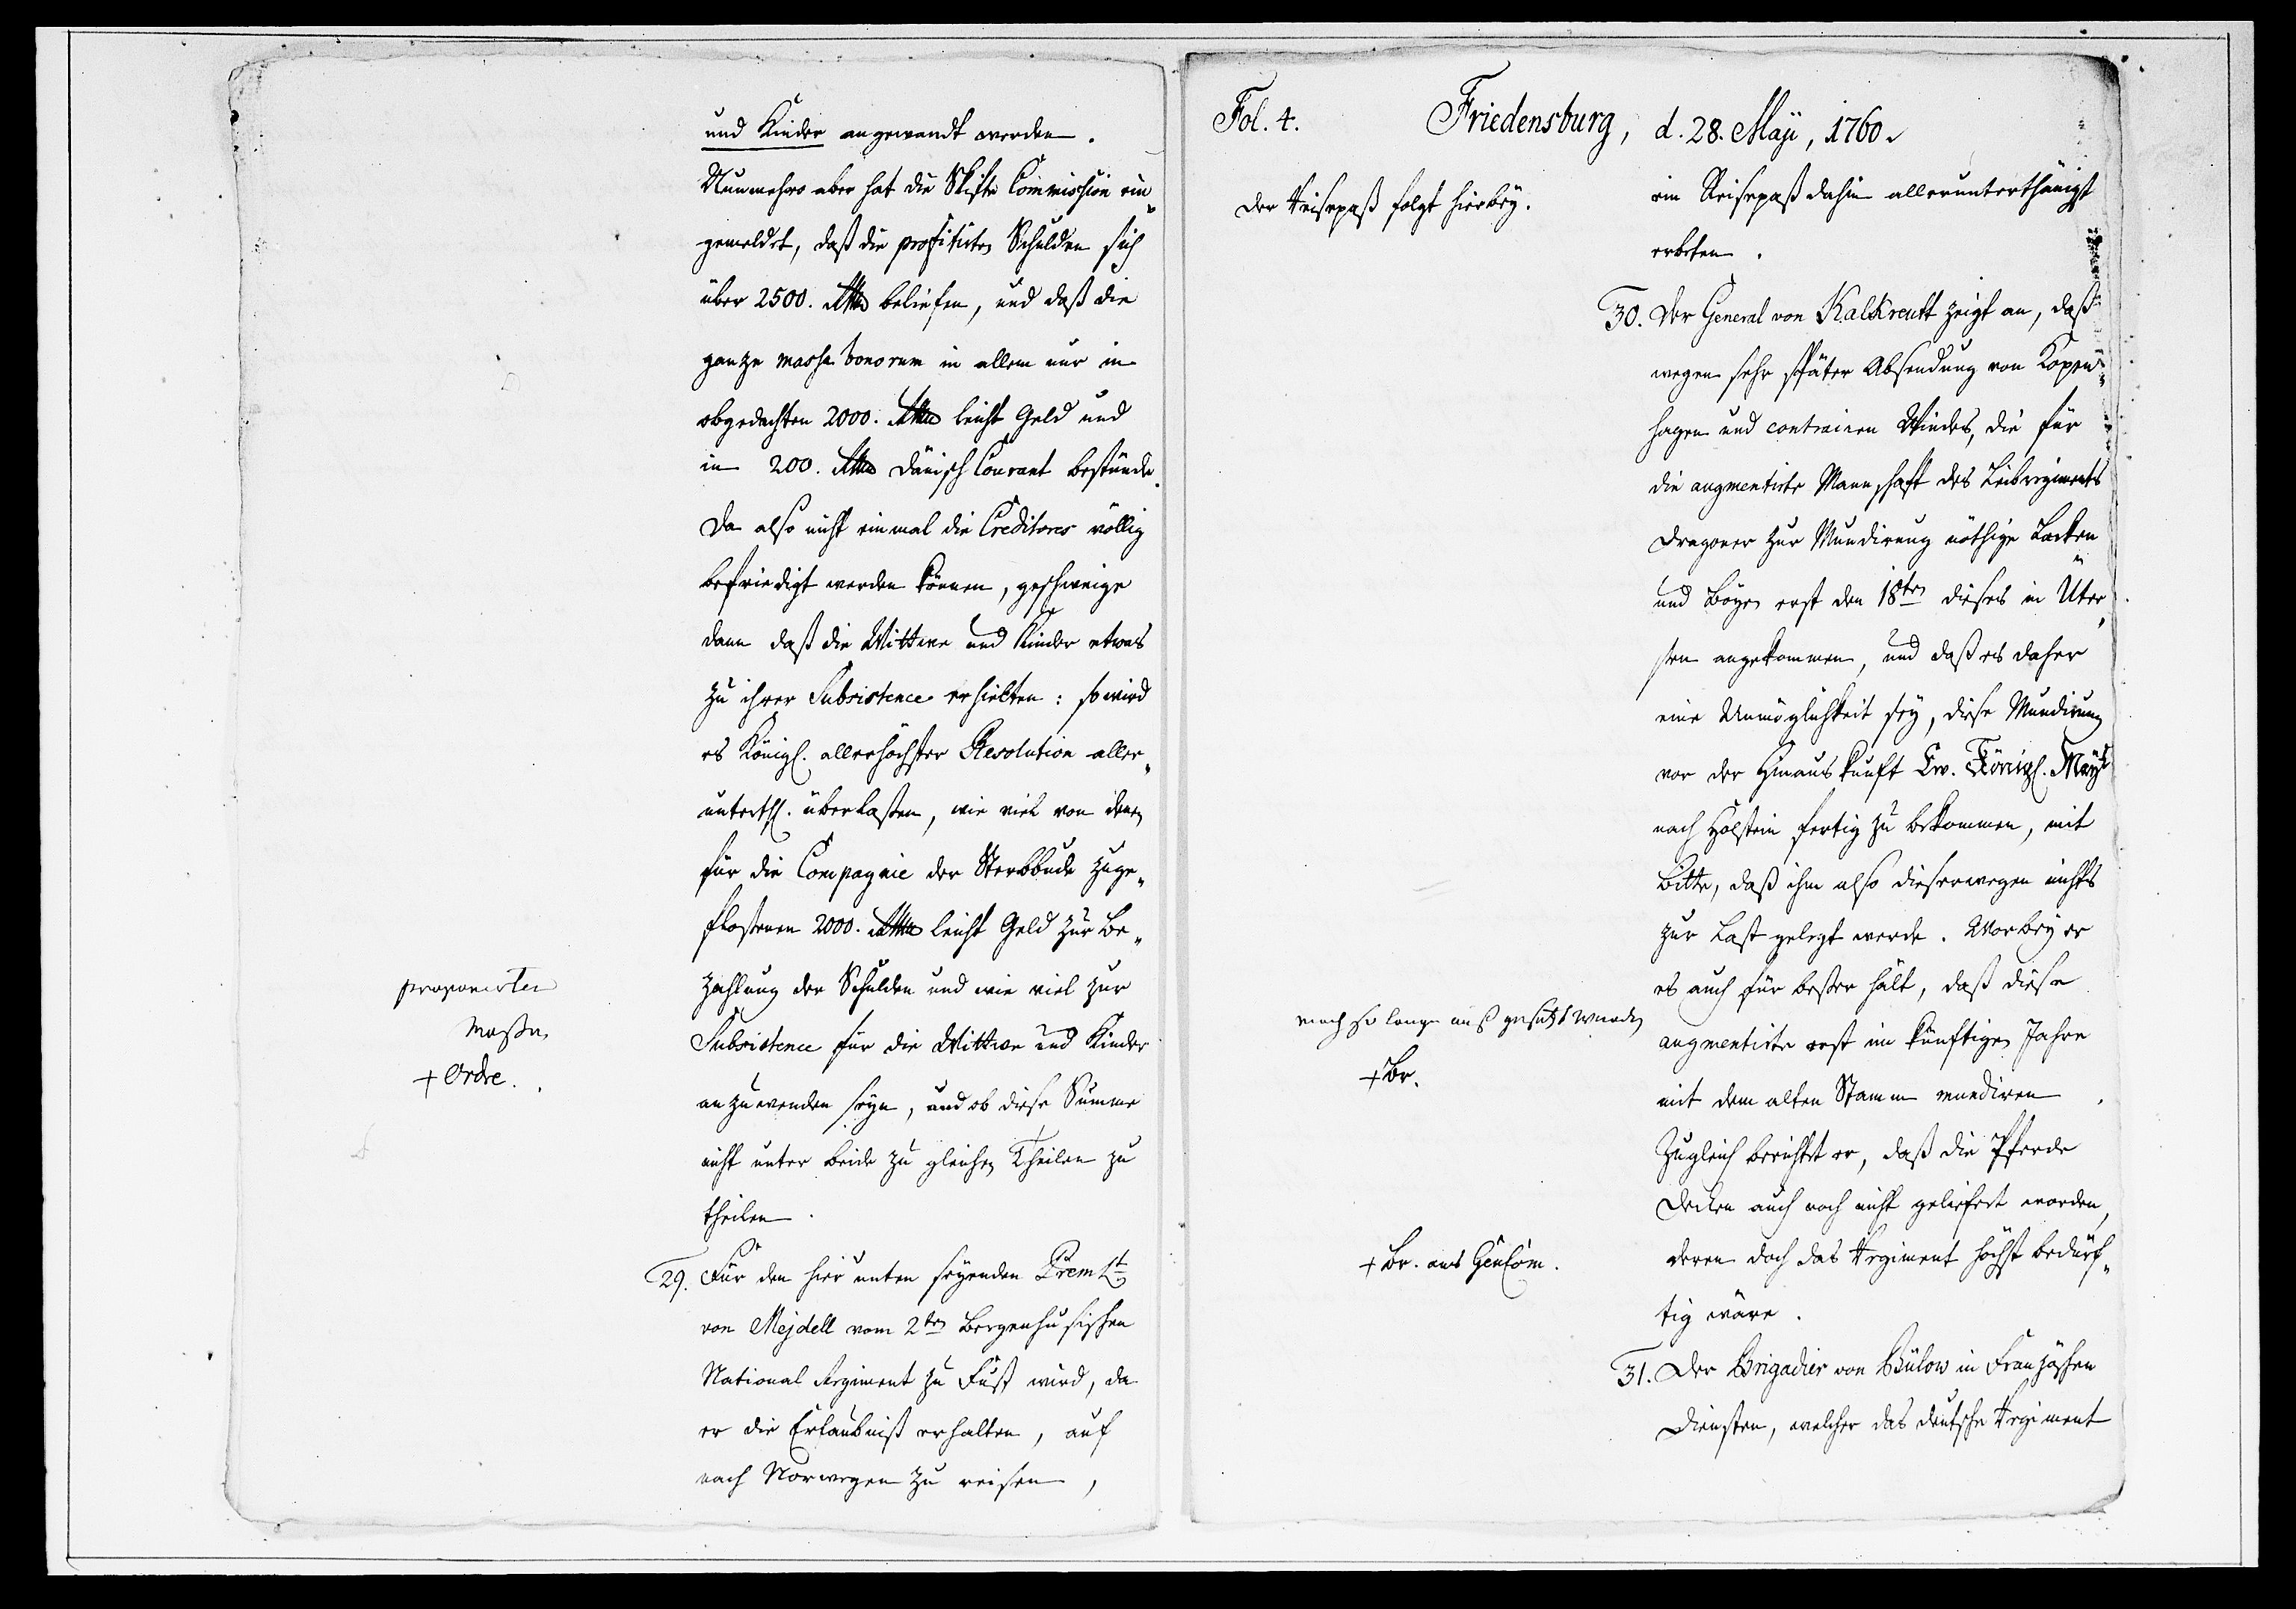 und Kinder angewandt werden.
Nunmehro aber hat die Skifte Commission ein„
gemeldet, daß die profitirte Schulden sich
über 2500. Rthlr beliefen, und daß die
ganze massa bonorum in allem nur in
obgedachten 2000. Rthlr leicht Geld und
in 200. Rthlr Dänisch Courant bestünde.
Da also nicht einmal die Creditores völlig
befriedigt werden können, geschweige
dann daß die Wittwe und Kinder etwas
zu ihrer Subsistence erhielten: so wird
es Königl. allerhöchster Resolution aller„
unterth. überlaßen, wie viel von denen
für die Compagnie der Sterbbude zuge„
floßenen 2000. Rthlr leicht Geld zur Be„
zahlung der Schulden und wie viel zur
Subsistence für die Wittwe und Kinder
anzuwenden seyn, und ob diese Summe
nicht unter beide zu gleichen Theilen zu
theilen.
proponirter
maßen
+ Ordre.
29. Für den hier unten seyenden Prem Lt
von Mejdell vom 2ten Bergenhusischen
National Regiment zu Fuß wird, da
er die Erlaubniß erhalten, auf
nach Norwegen zu reisen,
Fol. 4. Friedensburg, d. 28. Maji, 1760.
der Reisepaß folgt hierbey.
ein Reisepaß dahin allerunterthänigst
erbeten.
30. Der General von Kalkreutt zeigt an, daß
wegen sehr später Absendung von Kopen„
hagen und contrairen Windes, die für
die augmentirte Mannschaft des Leibregiments
Dragoner zur Mundirung nöthige Lacken
und Boyen erst den 18ten dieses in Üter„
sen angekommen, und daß es daher
eine Unmöglichkeit sey, diese Mundirung
vor der Hinauskunft Ew. Königl. Mayt
nach Holstein fertig zu bekommen, mit
Bitte, daß ihm also dieserwegen nichts
zur Last gelegt werde. Worbey er
es auch für beßer hält, daß diese
augmentirte erst im künftigen Jahre
mit dem alten Stamm mundiren.
Zugleich berichtet er, daß die Pferde
Decken auch noch nicht geliefert worden,
deren doch das Regiment höchst bedürf„
tig wäre.
muß so lange auß gesetzt werden
+ Br.
+ Br. ans GenCom.
31. Der Brigadier von Bülow in Französchen
Diensten, welcher das deutsche Regiment